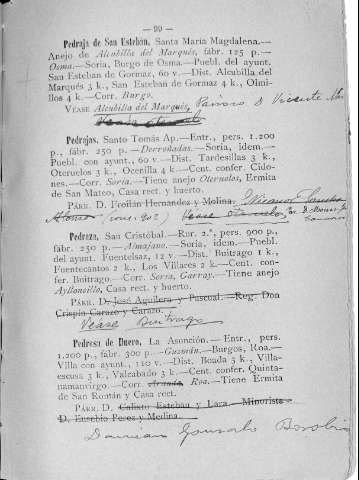 — 99 —
Pedraja de San Esteban, Santa María Magdalena.—
Anejo de Alcubilla del Marqués, fábr. 125 p.—
Osma.—Soria, Burgo de Osma.—Puebl. del ayunt.
San Esteban de Gormaz, 60 v.—Dist. Alcubilla del
Marqués 3 k., San Esteban de Gormaz 4 k., Olmi-
llos 4 k.—Corr. Burgo.
VÉASE Alcubilla del Marqués, Párroco D Vicente
Véase
Pedrajas, Santo Tomás Ap.—Entr., pers. 1.200
p., fábr. 250 p.—Derroñadas.—Soria, idem.—
Puebl. con ayunt., 60 v.—Dist. Tardesillas 3 k.,
Oteruelos 3 k., Ocenilla 4 k.—Cent. confer. Cido-
nes.—Corr. Soria.—Tiene anejo Oteruelos, Ermita
de San Mateo, Casa rect. y huerto.
PÁRR. D. Froilán Hernandez y Molina. Nicanor
Alonso Véase Oteruelos,
Pedraza, San Cristóbal.—Rur. 2.ª, pers. 900 p.,
fábr. 250 p.—Almajano.—Soria, idem.—Puebl.
del ayunt. Fuentelsaz, 12 v.—Dist. Buitrago 1 k.,
Fuentecantos 2 k., Los Villares 2 k.—Cent. con-
fer. Buitrago.—Corr. Soria, Garray.—Tiene anejo
Aylloncillo, Casa rect. y huerto.
PÁRR. D. José Aguilera y Pascual.—Reg. Don
Crispín Carazo y Carazo.
Véase Buitrago
Pedrosa de Duero, La Asunción.—Entr., pers.
1.200 p., fábr. 300 p.—Guzmán.—Burgos, Roa.—
Villa con ayunt., 110 v.—Dist. Boada 3 k., Villa-
escusa 3 k., Valcabado 3 k.—Cent. confer. Quinta-
namanvirgo.—Corr. Aranda, Roa.—Tiene Ermita
de San Román y Casa rect.
PÁRR. D. Calixto Esteban y Lara.—Minorista
D. Eusebio Peces y Medina.
Damian Gonzalo